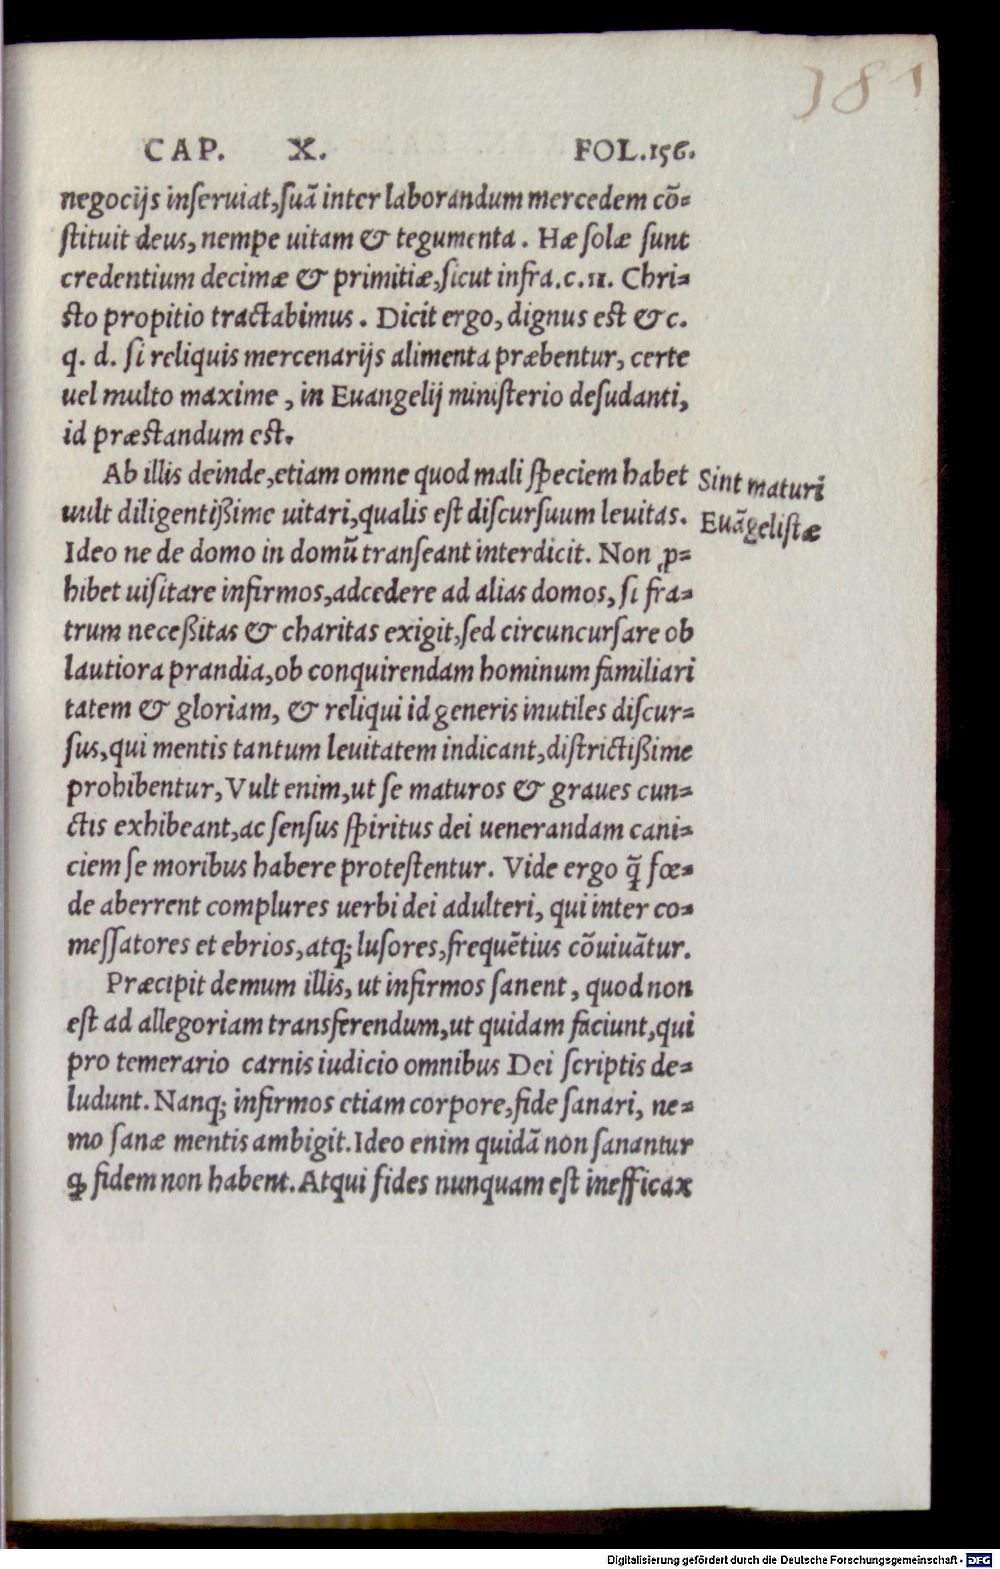 381
CAP. X. FOL.156.
negocijs inſeruiat,ſuā inter laborandum mercedem cō=
ſtituit deus, nempe uitam & tegumenta . Hæ ſolæ ſunt
credentium decimæ & primitiæ,ſicut infra.c.11. Chri=
ſto propitio tractabimus . Dicit ergo, dignus eſt &c.
q. d. ſi reliquis mercenarijs alimenta præbentur, certe
uel multo maxime , in Euangelij miniſterio deſudanti,
id præſtandum eſt.
Ab illis deinde,etiam omne quod mali ſpeciem habet
uult diligentißime uitari,qualis eſt diſcurſuum leuitas.
Ideo ne de domo in domū tranſeant interdicit. Non ꝓ=
hibet uiſitare infirmos,adcedere ad alias domos, ſi fra=
trum neceßitas & charitas exigit,ſed circuncurſare ob
lautiora prandia,ob conquirendam hominum familiari
tatem & gloriam, & reliqui id generis inutiles diſcur=
ſus,qui mentis tantum leuitatem indicant,diſtrictißime
prohibentur, Vult enim,ut ſe maturos & graues cun=
ctis exhibeant,ac ſenſus ſpiritus dei uenerandam cani=
ciem ſe moribus habere proteſtentur. Vide ergo q̄ fœ=
de aberrent complures uerbi dei adulteri, qui inter co=
meſſatores et ebrios,atq; luſores,frequētius cōuiuātur.
Præcipit demum illis, ut infirmos ſanent , quod non
eſt ad allegoriam transferendum,ut quidam faciunt,qui
pro temerario carnis iudicio omnibus Dei ſcriptis de=
ludunt. Nanq; infirmos etiam corpore,fide ſanari, ne=
mo ſanæ mentis ambigit.Ideo enim quidā non ſanantur
ꝙ fidem non habent. Atqui fides nunquam eſt inefficax
Sint maturi
Euāgeliſtæ
Digitalisierung gefördert durch die Deutsche Forschungsgemeinschaft - DFG